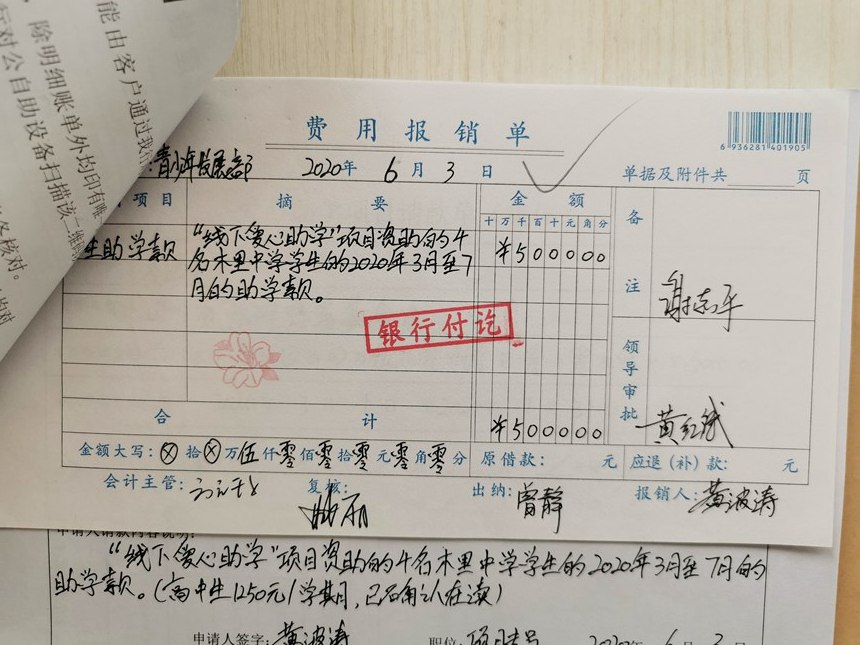 能由客户通过我
除明细账单外均印有唯一
对公自助设备扫描该二维
核对。
费用报销单
6 936281 401905
青少年发展部 2020年 6月 3日 单据及附件共 页
项目 摘要 金额 备注
十万千百十元角分
生助学款 “线下爱心助学”项目资助的4
名木里中学学生的2020年3月至7
月的助学款。
¥500000
谢志平
银行付讫
领导审批
黄红斌
合计 ¥500000
金额大写:ⓧ拾ⓧ万伍仟零佰零拾零元零角零分 原借款: 元 应退(补)款: 元
会计主管: 复核: 出纳:曾静 报销人:黄波涛
申请人请款内容说明:
“线下爱心助学”项目资助的4名木里中学学生的2020年3月至7月的
助学款。(高中生1250元/学期,已确认在读)
申请人签字:黄波涛 职位:项目专员 2020年6月3日